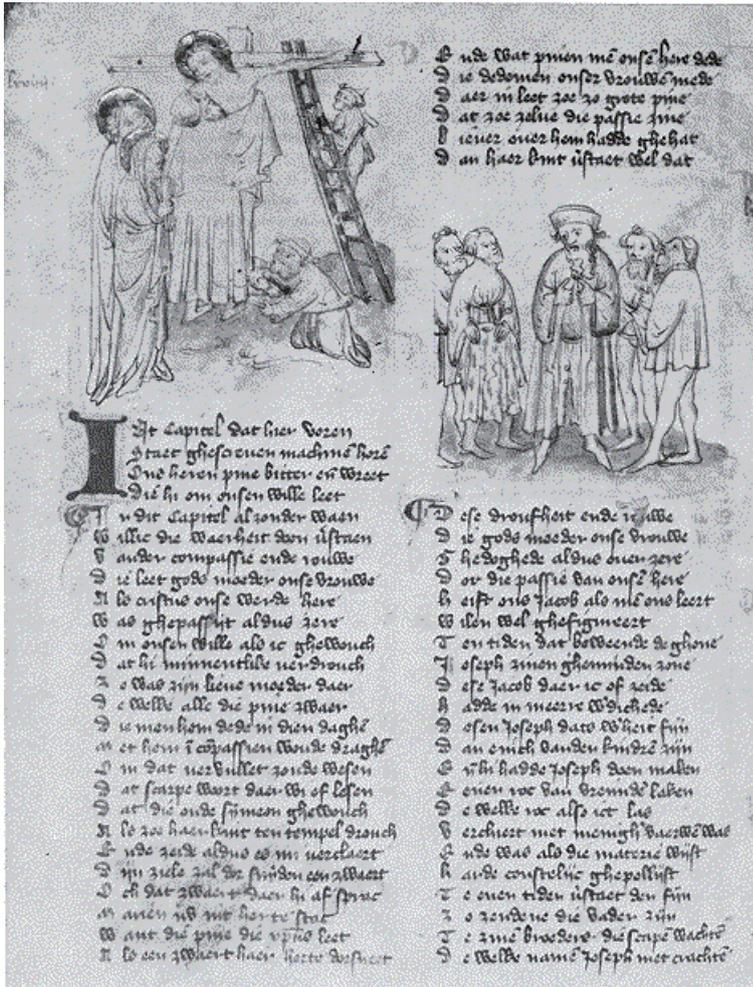 In dat Capitel dat hier voren
Staet ghescreven machmē horē
Ons heren pine bitter eñ wreet
Die hi om onsen wille leet
In dit Capitel al zonder waen
Willic die waerheit doen v̄staen
Vander compassie ende rouwe
Die leet gods moeder onse vrouwe
Als cristus onse werde here
Was ghepassijt aldus zere
Om onsen wille als ic ghewouch
Dat hi minnentlike verdrouch
Zo was zijn lieve moeder daer
De welke alle die pine zwaer
Die men hem dede in dien daghē
Met hem ī cōpassien woude draghē
Om dat vervullet zoude wesen
Dat scarpe woort daer wi of lesen
Dat die oude symeon ghewouch
Als zoe haer kint ten tempel drouch
Ende zeide aldus es mi verclaert
Dijn ziele zal der sniden een zwaert
Och dat zwaert daer hi af sprac
Marien uut herte stac
Want die pine die leet
Als een zwaert haer herte
Ende wat pinen mē onsē here dede
Die dedemen onser vrouwē mede
Daer in leet zoe zo grote pine
Dat zoe zelve die passie zine
Liever over hem hadde ghehat
Dan haer kint v̄staet wel dat
Dese droufheit ende rouwe
Die gods moeder onse vrouwe
Ghedoghede aldus over zere
Dor die passie van onsē here
Heift ons Jacob als mē ons leert
Wilen wel ghefigureert
Ten tiden dat beweende de ghone
Joseph zinen gheminden zone
Dese Jacob daer ic of zeide
Hadde in meerre w̄dichede
Desen Joseph dats w̄heit fijn
Dan enich vanden kindrē zijn
Eñ hi hadde Joseph doen maken
Eenen roc van vremde laken
De welke roc also ict las
Verchiert met menigh vaerwē was
Ende was als die materie wijst
Harde constelijc ghepollijst
Te eenen tiden v̄staet den fijn
Zo zendene die vader zijn
Te zinē broeders die scape wachtē
De welke namē Joseph met crachtē